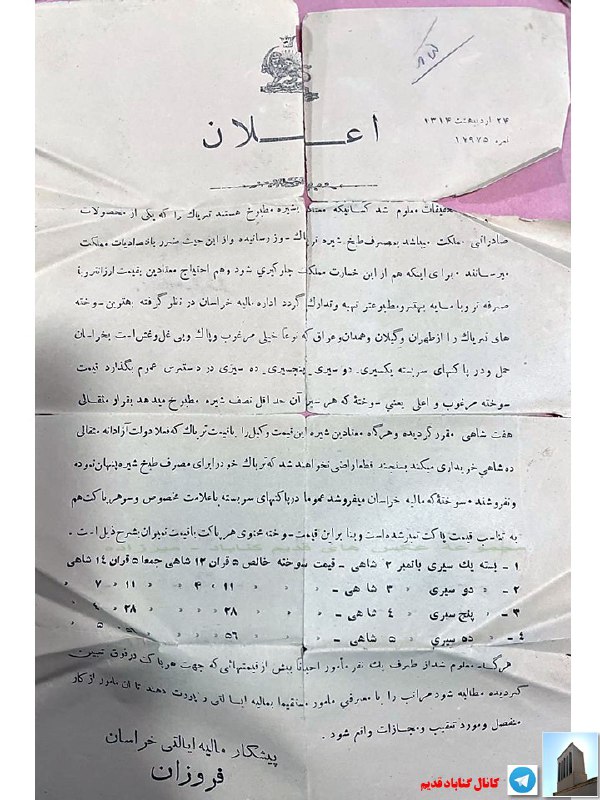 ۲۴ اردیبهشت ۱۳۱۴
نمره ۱۲۹۷۵
اعلان
تحقیقات معلوم شد کسانیکه معتاد بشیره مطبوخ هستند تریاك را که یکی از محصولات
صادراتی مملکت میباشد بمصرف طبخ شیره تریاك سوز رسانیده و از این حیث ضرر باقتصادیات مملکت
میرسانند. برای اینکه هم از این خسارت مملکت جلوگیری شود وهم احتیاج معتادین بقیمت ارزانتر و با
صرفه تر و با سایه بهتر و مطبوعتر تهیه و تدارك گردد اداره مالیه خراسان در نظر گرفته بهترین سوخته
های تریاك را از طهران و گیلان و همدان و عراق که نوعاً خیلی مرغوب و پاك و بی غل و غش است بخراسان
حمل و در پاکتهای سربسته یکسیری. دو سیری. پنجسیری. ده سیری در دسترس عموم بگذارد قیمت
سوخته مرغوب و اعلی یعنی سوختهٔ که هر سیر آن حد اقل نصف شیره مطبوخ میدهد بقرار مثقالی
هفت شاهی مقرر گردیده و هرگاه معتادین شیره این قیمت و کیل را با قیمت تریاك که فعلا دولت آزادانه مثقالی
ده شاهی خریداری میکند بسنجند قطعاً راضی نخواهند شد که تریاك خود را برای مصرف طبخ شیره پنهان نموده
و نفروشند. سوختهٔ که مالیه خراسان میفروشد عموماً در پاکتهای سربسته با علامت مخصوص و سر هر پاکت هم
به تناسب قیمت پاکت تمبر شده است و بنا براین قیمت سوخته محتوی هر پاکت با قیمت تمبر آن بشرح ذیل است.
۱ - بسته یك سیری با تمبر ۲ شاهی - قیمت سوخته خالص ۵ قران ۱۲ شاهی جمعا ۵ قران ۱۴ شاهی
۲ - » دو سیری » ۳ شاهی - » » » ۱۱ » ۴ » » ۱۱ » ۷ »
۳ - » پنج سیری » ۴ شاهی - » » » ۲۸ » » ۲۸ » ۴ »
۴ - » ده سیری » ۵ شاهی - » » » ۵۶ »
هرگاه معلوم شد از طرف یك نفر مأمور احیاناً بیش از قیمتهائی که جهت هر پاکت در فوق تعیین
گردیده مطالبه شود مراتب را با معرفی مأمور مستقیماً بمالیه ایالتی راپورت دهند تا آن مأمور از کار
منفصل و مورد تعقیب و مجازات واقع شود.
پیشکار مالیه ایالتی خراسان
فروزان
کانال گناباد قدیم